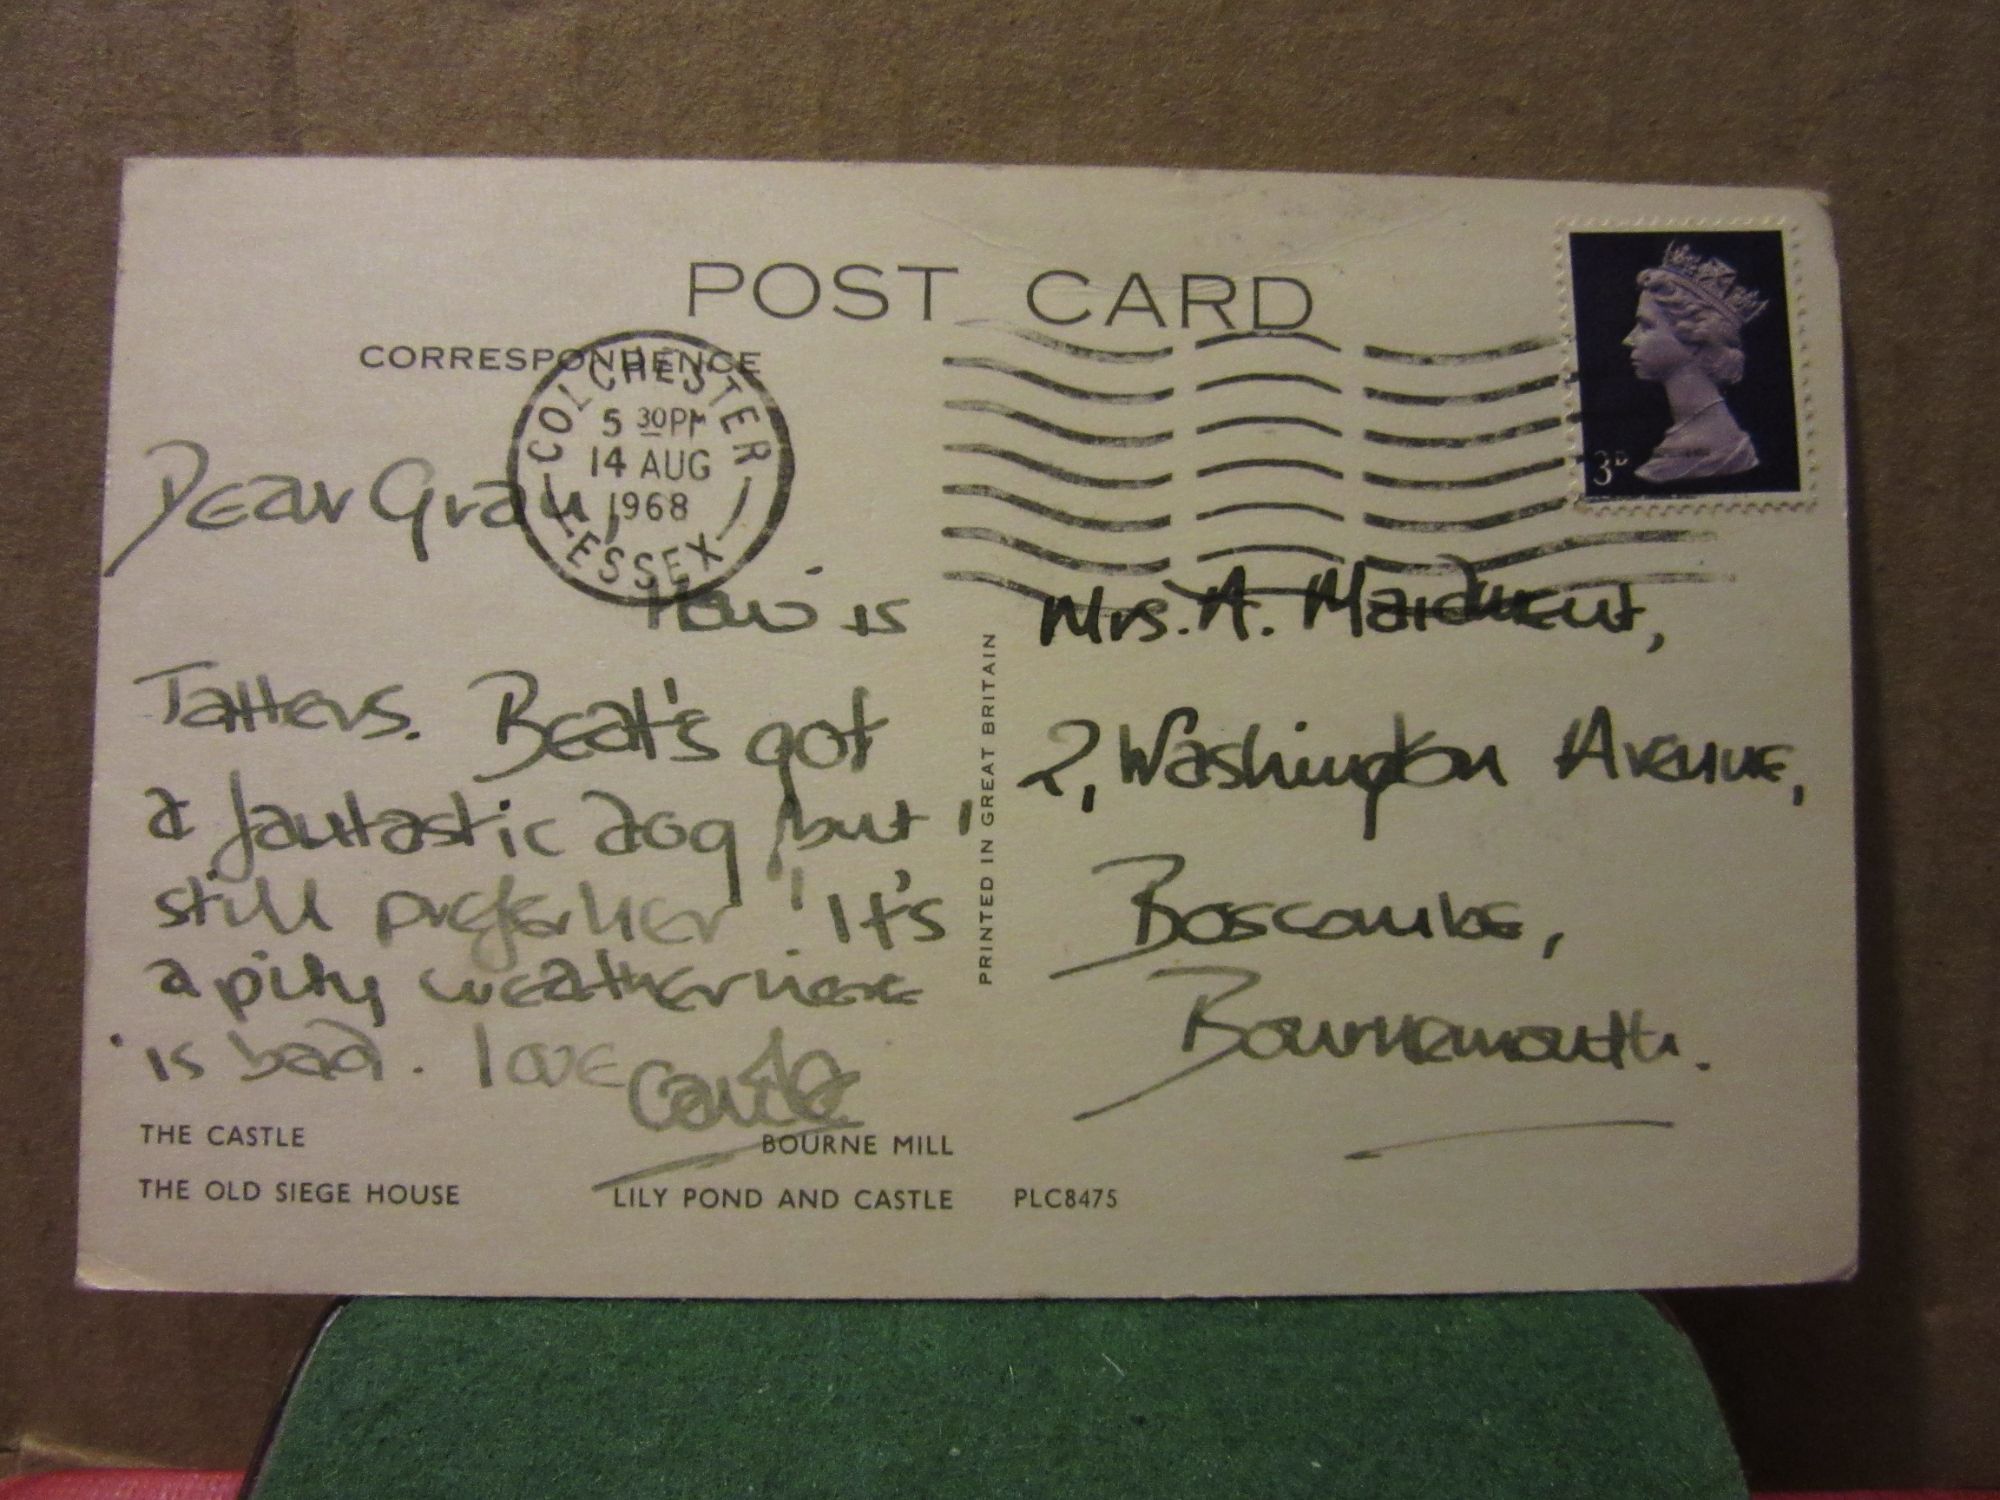 POST CARD
CORRESPONDENCE
COLCHESTER
5 30PM
14 AUG
1968
ESSEX
3D
Dear Gran,
How is
Tatters. Beat's got
a fantastic dog but I
still prefer her! It's
a pity weather here
is bad. love
Mrs. A. Maidment,
2, Washington Avenue,
Boscombe,
Bournemouth.
PRINTED IN GREAT BRITAIN
THE CASTLE
BOURNE MILL
THE OLD SIEGE HOUSE
LILY POND AND CASTLE
PLC8475